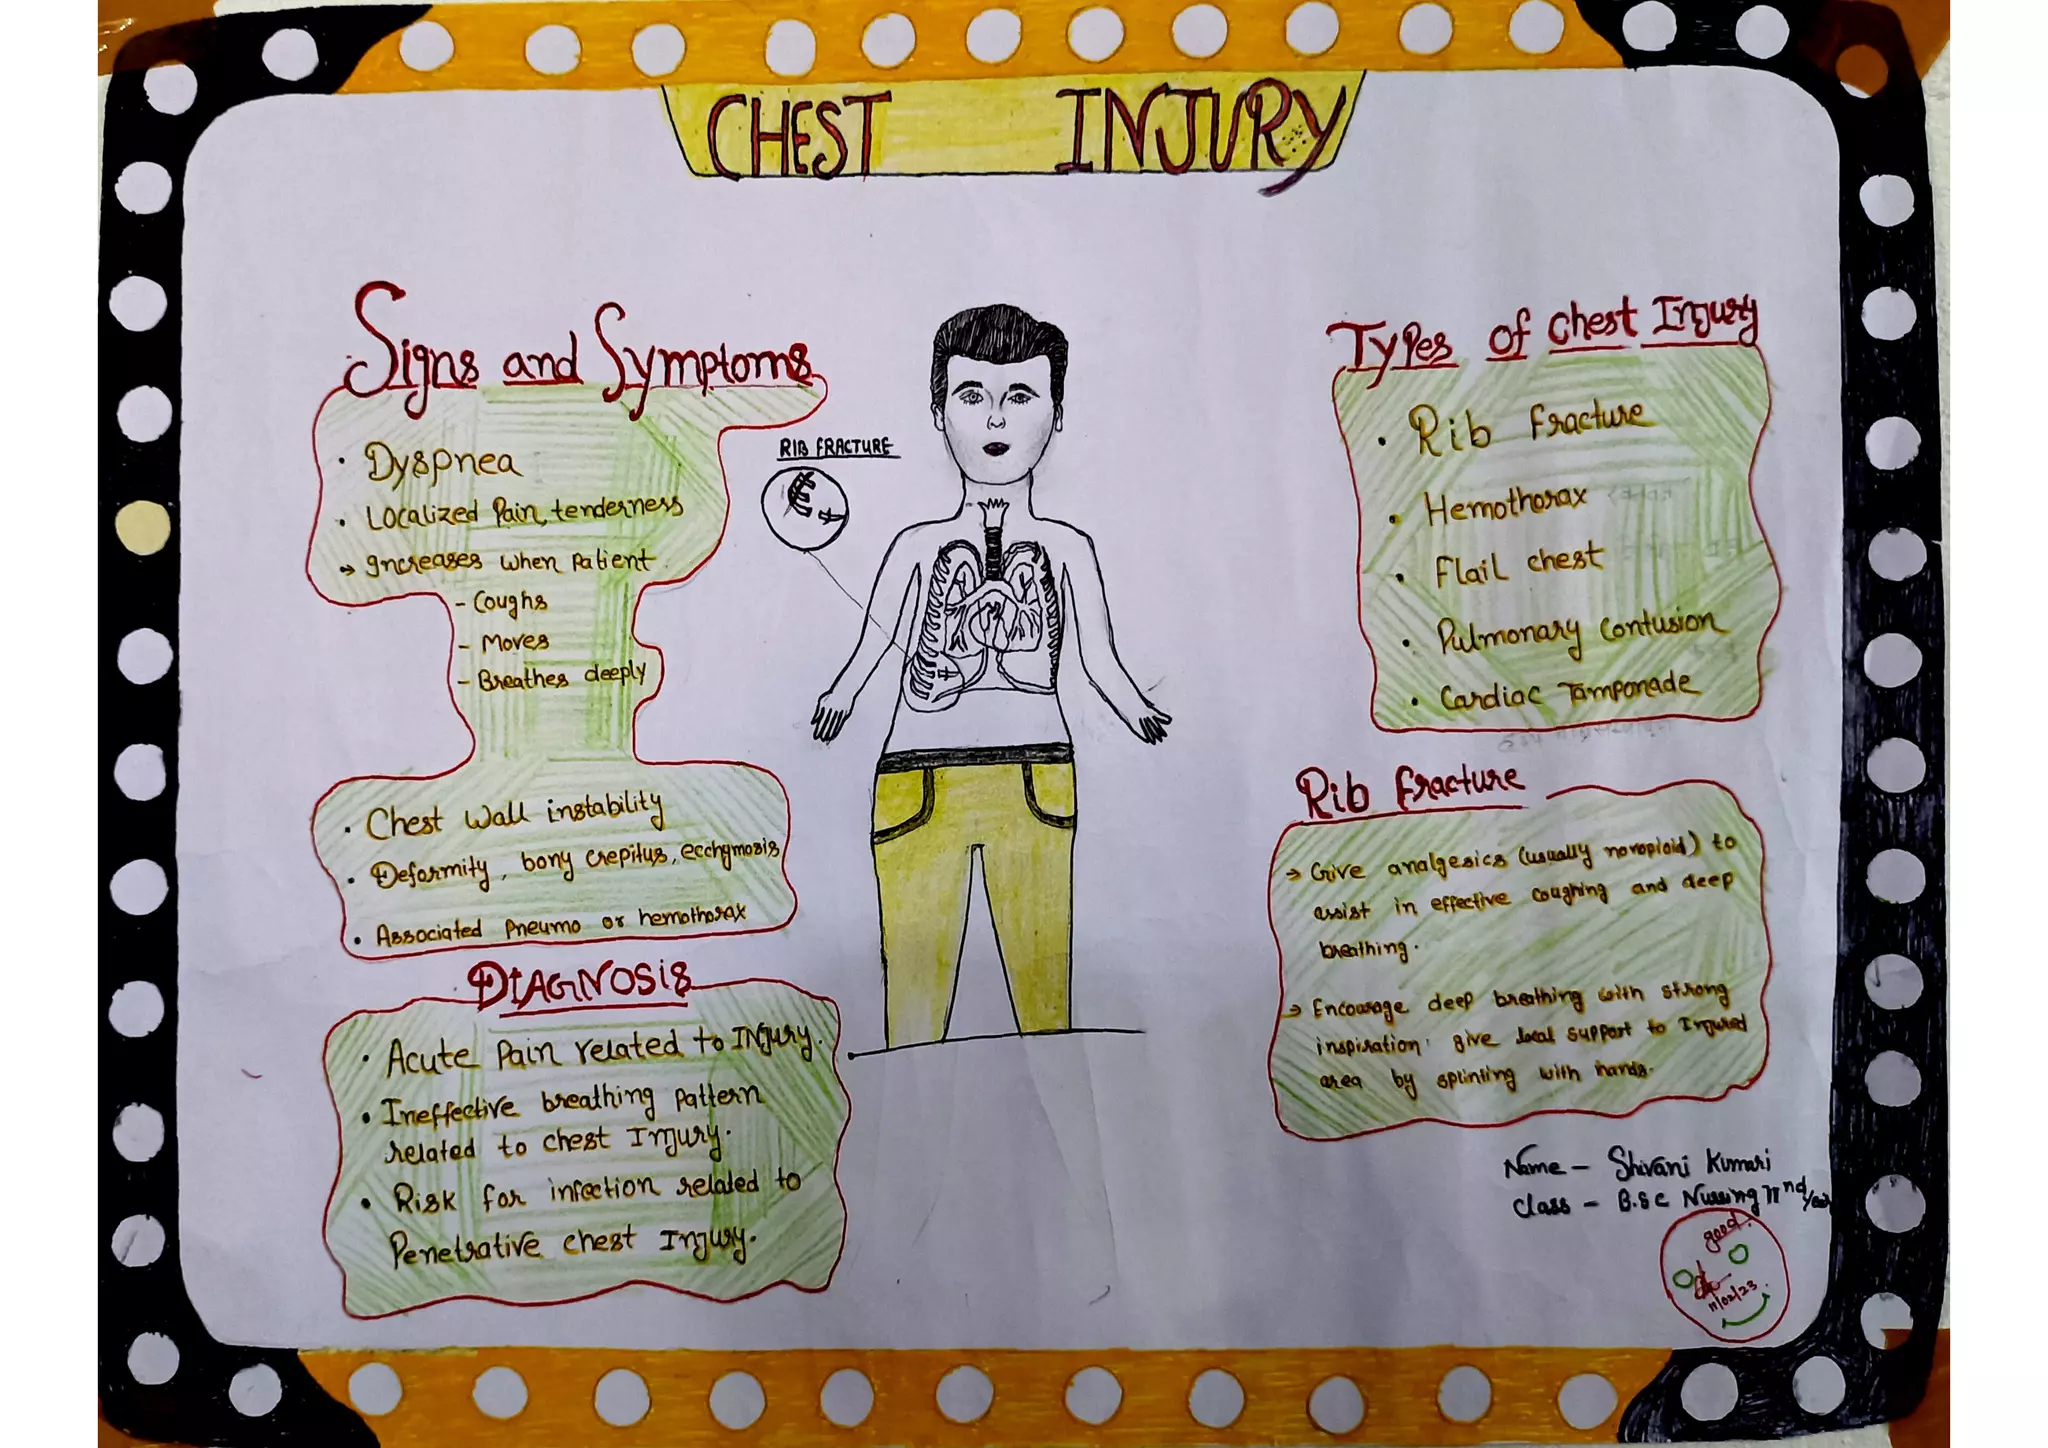 CHEST INJURY
Signs and Symptoms
• Dyspnea
• Localized Pain, tenderness
→ Increases when Patient
- Coughs
- Moves
- Breathes deeply
• Chest wall instability
• Deformity, bony crepitus, ecchymosis
• Associated pneumo or hemothorax
DIAGNOSIS
• Acute pain related to INjury.
• Ineffective breathing pattern
related to chest Injury.
• Risk for infection related to
Penetrative chest Injury.
RIB FRACTURE
Types of Chest Injury
• Rib Fracture
• Hemothorax
• Flail chest
• Pulmonary Contusion
• Cardiac Tamponade
Rib Fracture
→ Give analgesics (usually noropioid) to
assist in effective coughing and deep
breathing.
→ Encourage deep breathing with strong
inspiration. give local support to Injured
area by splinting with hands.
Name - Shivani Kumari
Class - B.Sc Nursing IInd/year
good
11/02/23